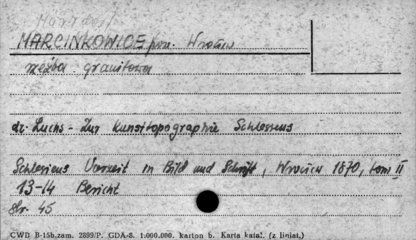 MARCINKOWICE pow. Wrocław
rzeźba granitowa
dr. Luchs - Zur Kunsttopographie Schlesiens
Schlesiens Vorzeit in Bild und Schrift, Wrocław 1870, tom II
13-14 Bericht
str. 45
CWD B-15b, zam. 2899/P. GDA-8. 1.000.000. karton b. Karta katal. (z liniat.)